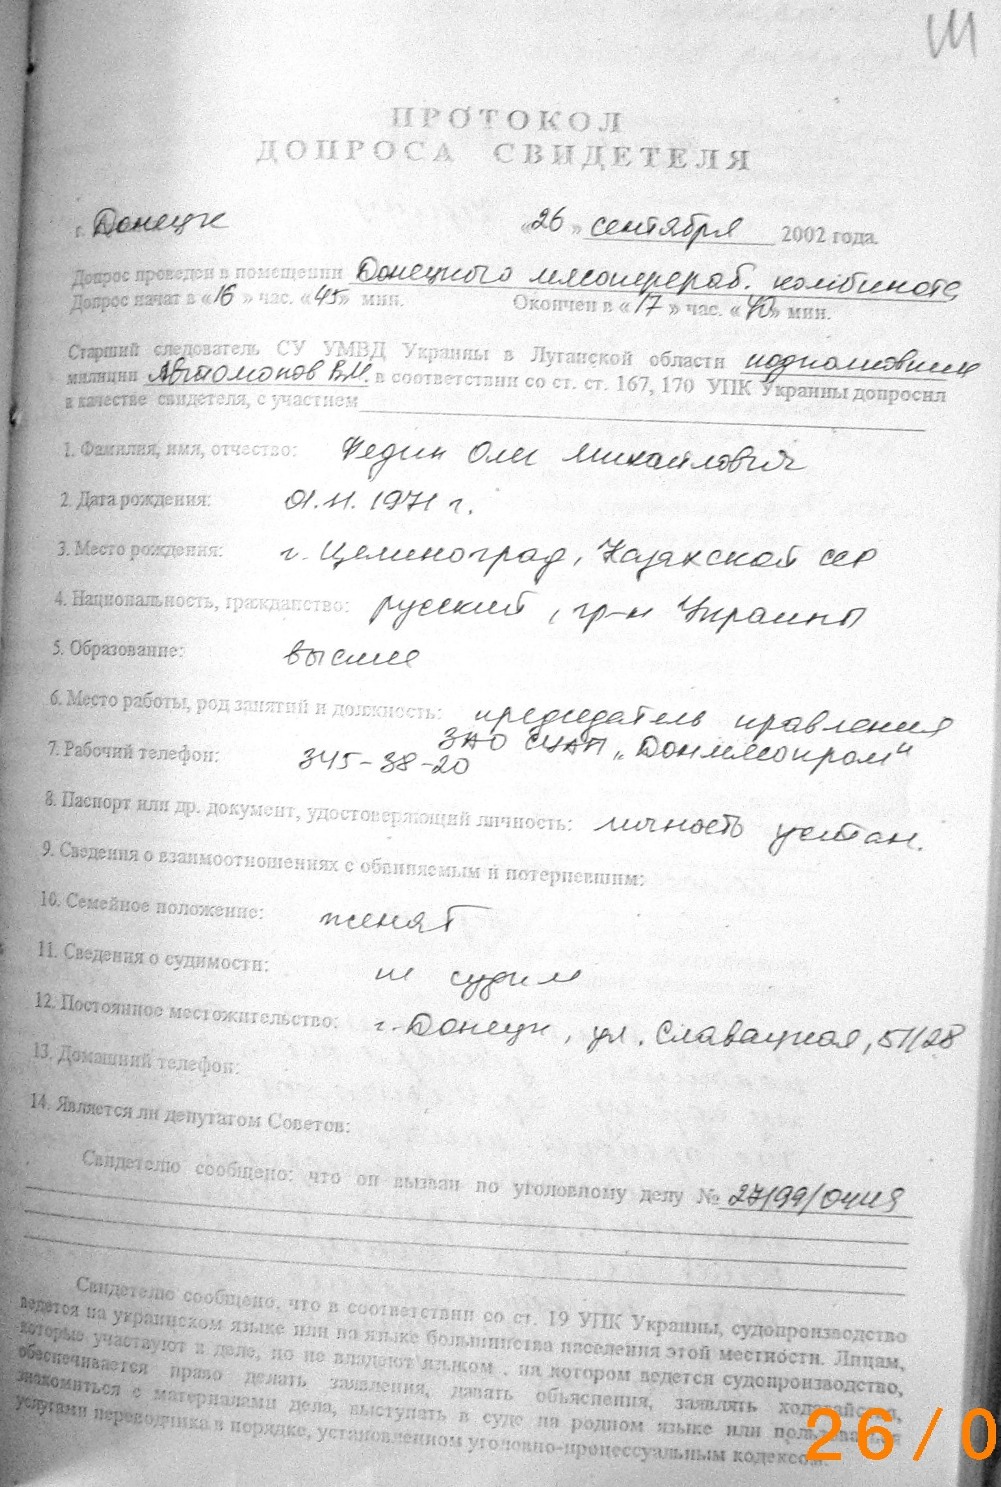 ПРОТОКОЛ
ДОПРОСА СВИДЕТЕЛЯ
г. Донецк «26» сентября 2002 года.
Допрос проведен в помещении Донецкого мясоперераб. комбината
Допрос начат в «16» час. «45» мин. Окончен в «17» час. «40» мин.
Старший следователь СУ УМВД Украины в Луганской области подполковник
милиции Автомонов В.М. в соответствии со ст. ст. 167, 170 УПК Украины допросил
в качестве свидетеля, с участием
1. Фамилия, имя, отчество: Федин Олег Михайлович
2. Дата рождения: 01.11.1971 г.
3. Место рождения: г. Целиноград, Казахской ССР
4. Национальность, гражданство: русский, гр-н Украины
5. Образование: высшее
6. Место работы, род занятий и должность: председатель правления
ЗАО "Донмясопром"
7. Рабочий телефон: 345-38-20
8. Паспорт или др. документ, удостоверяющий личность: личность устан.
9. Сведения о взаимоотношениях с обвиняемым и потерпевшим:
10. Семейное положение: женат
11. Сведения о судимости: не судим
12. Постоянное местожительство: г. Донецк, ул. Славацкая, 51/28
13. Домашний телефон:
14. Является ли депутатом Советов:
Свидетелю сообщено: что он вызван по уголовному делу №
Свидетелю сообщено, что в соответствии со ст. 19 УПК Украины, судопроизводство
ведется на украинском языке или на языке большинства населения этой местности. Лицам,
которые участвуют в деле, но не владеют языком . на котором ведется судопроизводство,
обеспечивается право делать заявления, давать объяснения, заявлять ходатайства,
знакомиться с материалами дела, выступать в суде на родном языке или пользоваться
услугами переводчика в порядке, установленном уголовно-процессуальным кодексом.
26/0